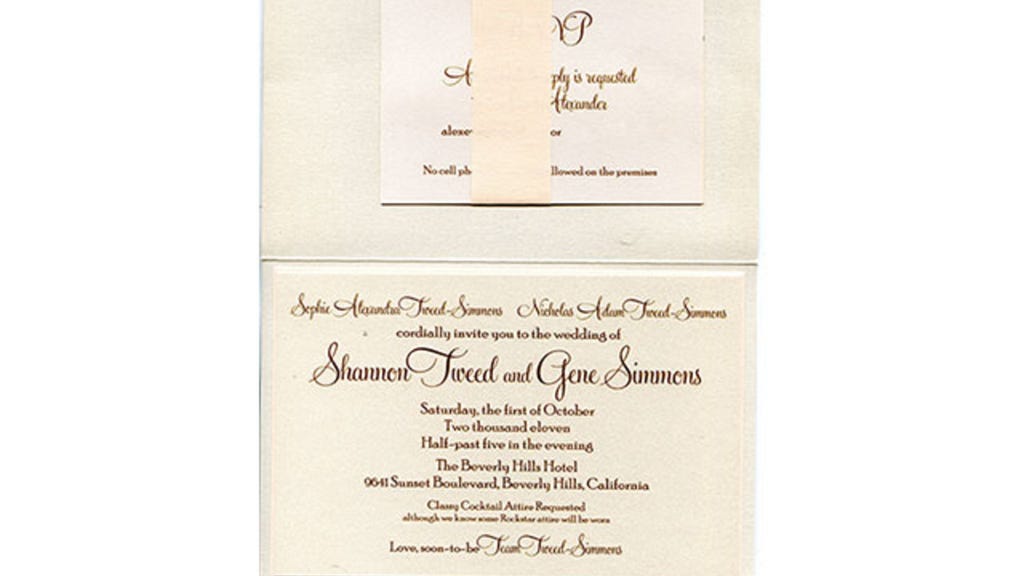 ply is requested
Alexander
No cell llowed on the premises
Sophie Alexandra Tweed-Simmons Nicholas Adam Tweed-Simmons
cordially invite you to the wedding of
Shannon Tweed and Gene Simmons
Saturday, the first of October
Two thousand eleven
Half-past five in the evening
The Beverly Hills Hotel
9641 Sunset Boulevard, Beverly Hills, California
Classy Cocktail Attire Requested
although we know some Rockstar attire will be worn
Love, soon-to-be Team Tweed-Simmons